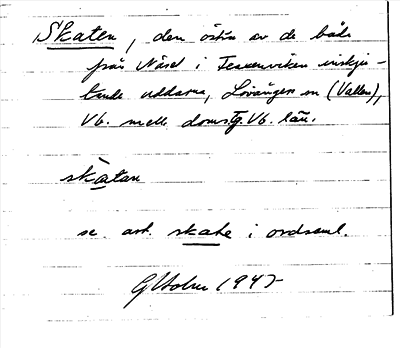 Skaten, den östra av de båda
från Näset i Tessenviken utskju-
tande uddarna, Lövångers sn (Vallen),
Vb. mell. doms. Vb. län.
skàtan
se art. skate i ordsaml.
GHolm 1947